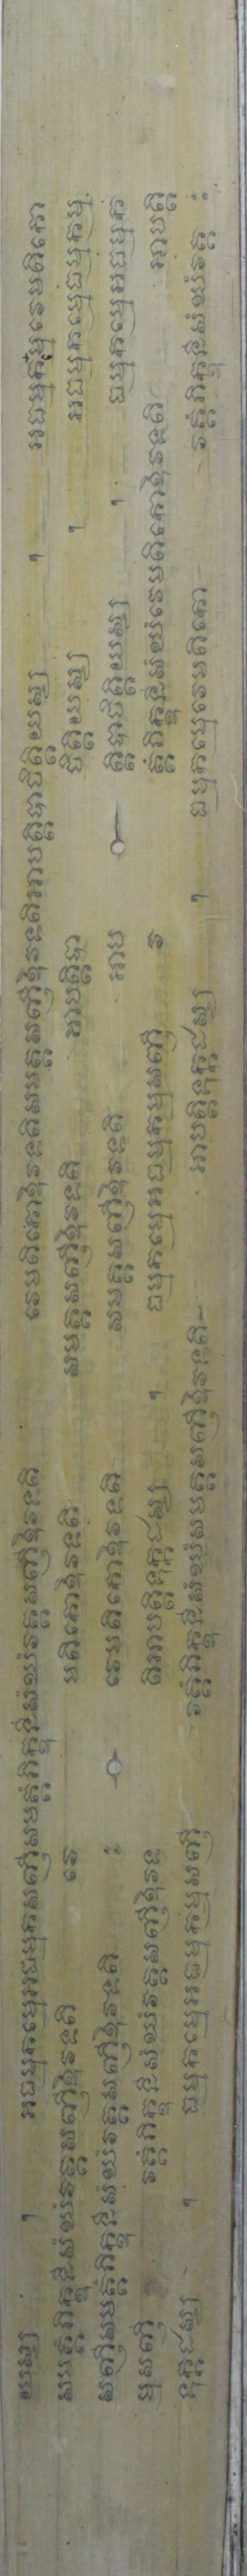 យស្ស ។ អធម្មកម្មេអធម្មកសញ្ញីសមគ្គំភិក្ខុនីសំឃំវគ្គសញ្ញីឱវទតិ វេមតិកោឱវទតិសមគ្គសញ្ញីឱវទតិអាបត្តិបាចិត្តិយស្ស ។ អធម្មកម្មេវេមតិកោ
សមគ្គំភិក្ខុនីសំឃំវគ្គសញ្ញីឱវទតិ វេ មតិកោឱវទតិ សមគ្គសញ្ញីឱវទតិ អាបត្តិបា ចិត្តិយស្ស ។ អធម្មកម្មេធម្មកម្ម
សញ្ញីសមគ្គំភិក្ខុនីសំឃំវគ្គសញ្ញីឱវទតិ ៖ វេមតិកោឱវទតិ សមគ្គសញ្ញីឱវទតិ អាប ត្តិបាចិត្តិយស្ស ។ ធម្មកម្មេអធម្មក
ម្មសញ្ញី វគ្គំភិក្ខុនីសំឃំវគ្គសញ្ញីឱវទ តិអាបត្តិទុក្កដស្ស ។ ធម្មកម្មេអធម្មកម្មសញ្ញី វ គ្គំភិក្ខុនីសំឃំវេមតិកោឱវទតិ អាបត្តិ
ទុក្កដស្ស ។ ធម្មកម្មេអធម្មកម្មសញ្ញី វគ្គំភិក្ខុនីសំឃំសមគ្គសញ្ញីឱវទតិ អាបត្តិទុក្កដស្ស ។ ធម្មកម្មេវេមតិកោ វគ្គំភិក្ខុនីសំឃំវគ្គ ៖